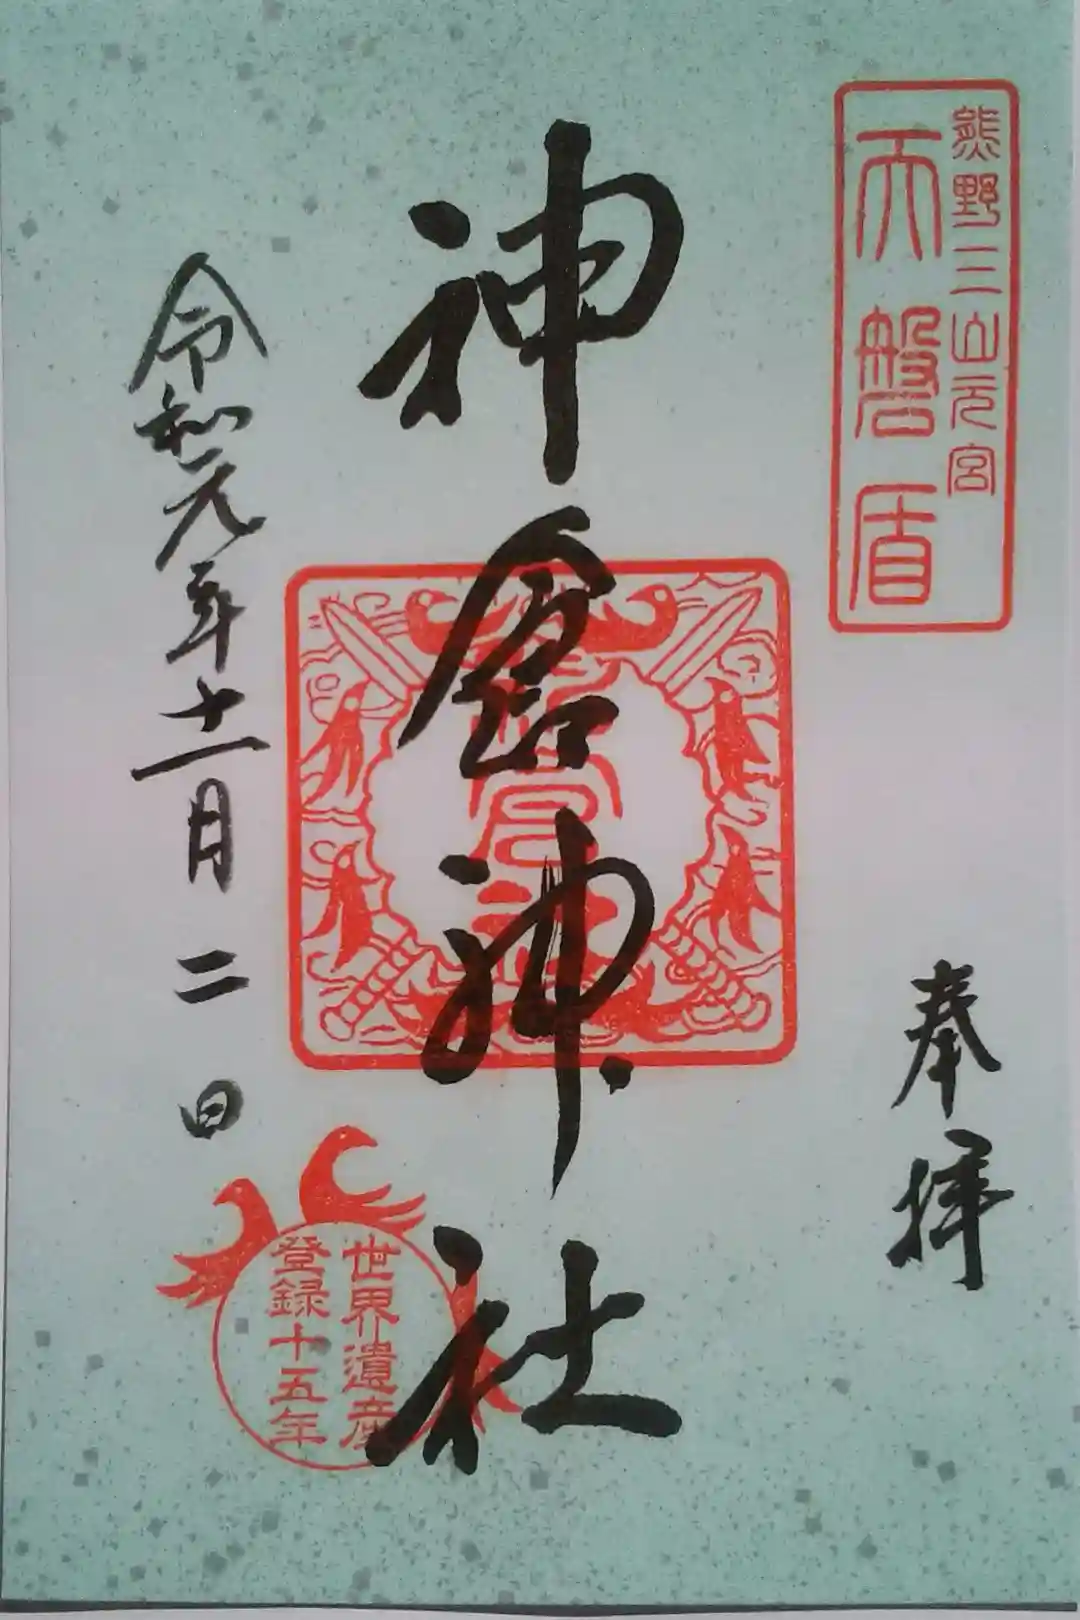 熊野三山元宮
天磐盾
奉拝
神倉神社
世界遺産
登録十五年
令和元年十一月二日